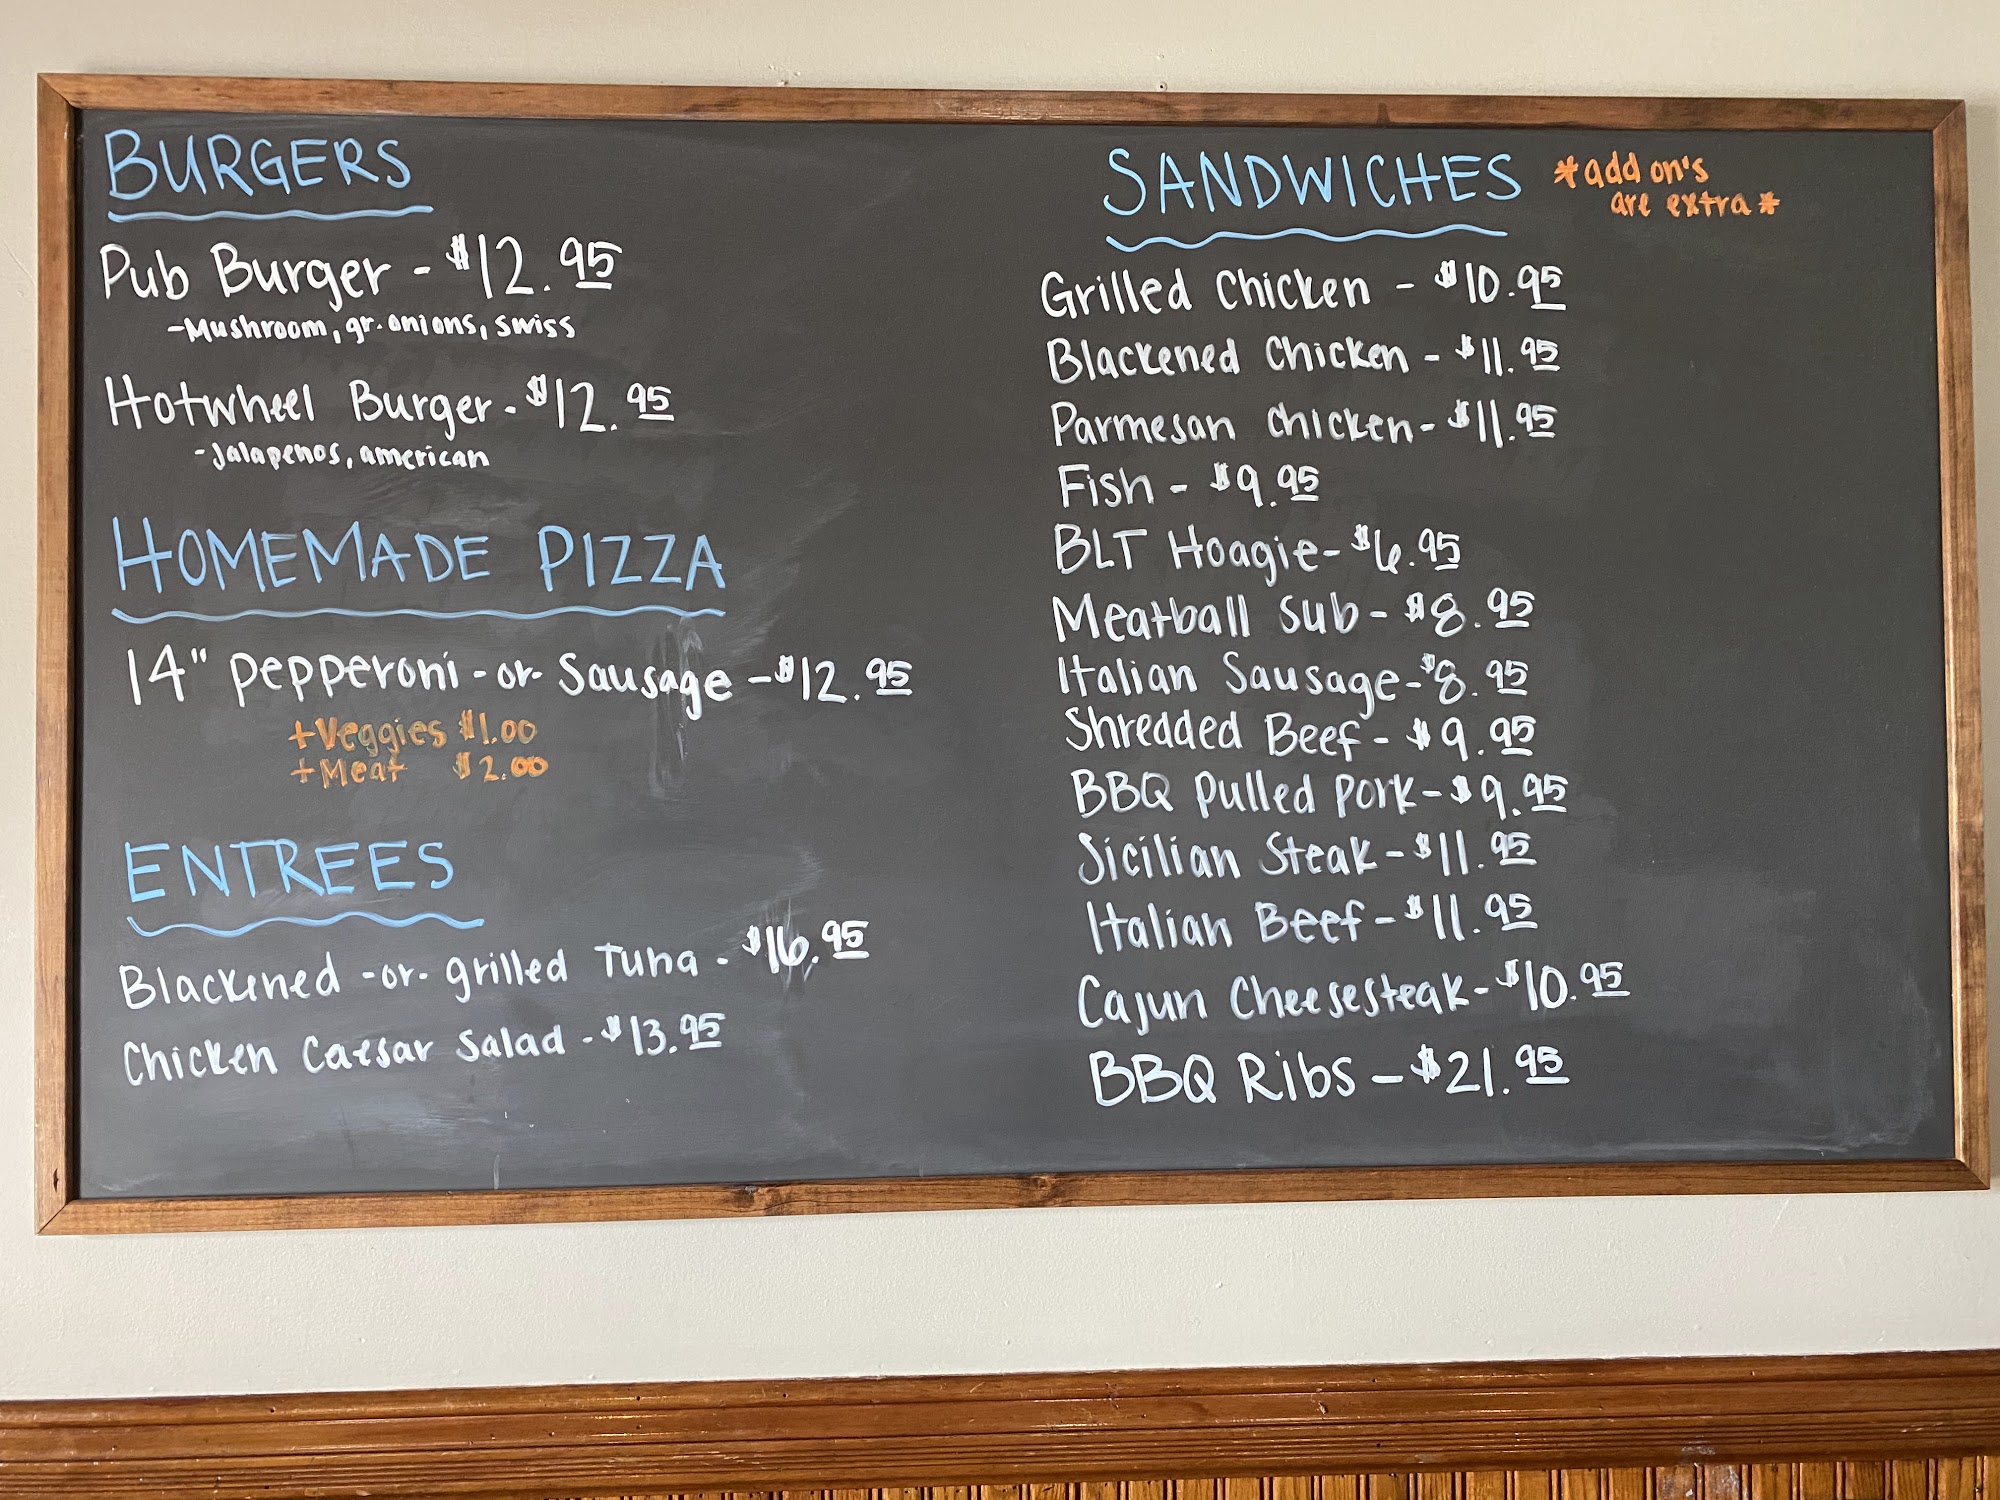 BURGERS
Pub Burger - $12.95
-Mushroom, gr. onions, swiss
Hotwheel Burger - $12.95
-Jalapenos, american
HOMEMADE PIZZA
14" pepperoni -or- Sausage - $12.95
+Veggies $1.00
+Meat $2.00
ENTREES
Blackened -or- grilled Tuna - $16.95
Chicken Caesar Salad - $13.95
SANDWICHES
*add on's
are extra*
Grilled Chicken - $10.95
Blackened Chicken - $11.95
Parmesan Chicken - $11.95
Fish - $9.95
BLT Hoagie - $6.95
Meatball Sub - $8.95
Italian Sausage - $8.95
Shredded Beef - $9.95
BBQ Pulled Pork - $9.95
Sicilian Steak - $11.95
Italian Beef - $11.95
Cajun Cheesesteak - $10.95
BBQ Ribs - $21.95